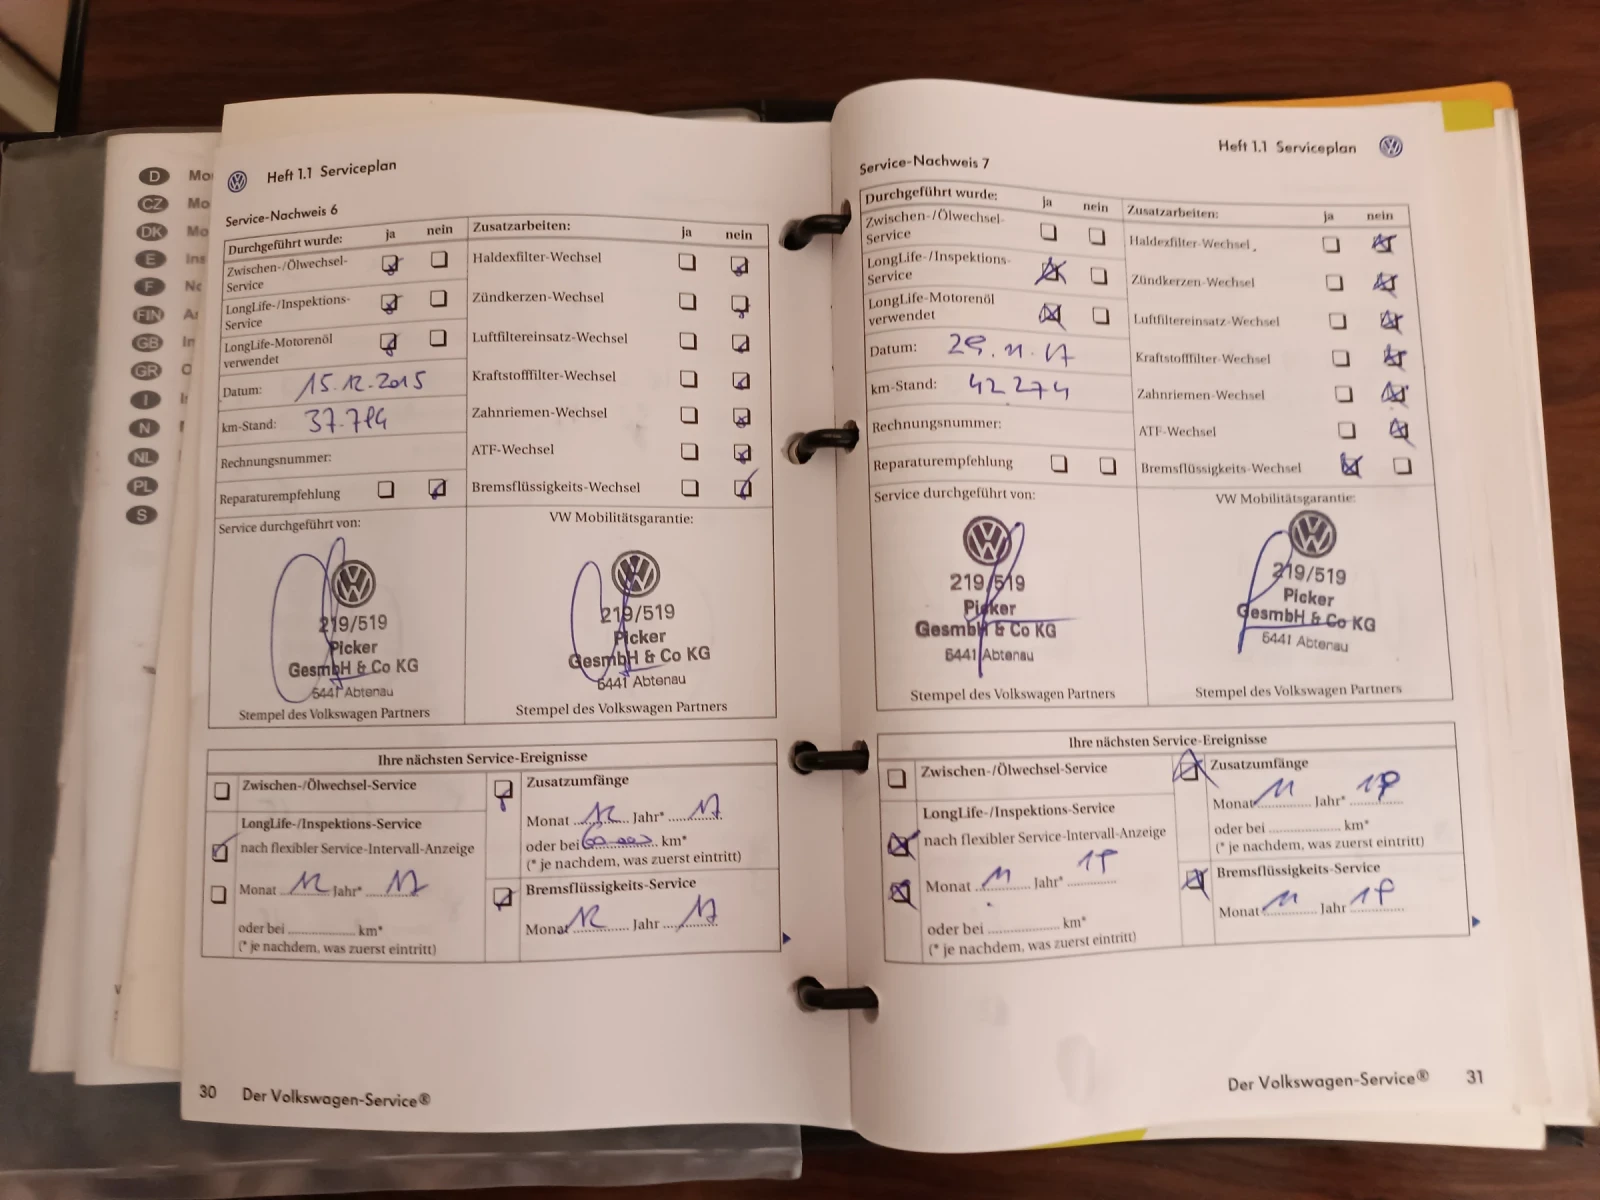 D Mo
CZ Mo
DK Mo
E Ins
F No
FIN
GB In
GR
I
N
NL
PL
S
Heft 1.1 Serviceplan
Service-Nachweis 6
Durchgeführt wurde: ja nein
Zwischen-/Ölwechsel-
Service
LongLife-/Inspektions-
Service
LongLife-Motorenöl
verwendet
Datum: 15.12.2015
km-Stand: 37.714
Rechnungsnummer:
Reparaturempfehlung
Zusatzarbeiten: ja nein
Haldexfilter-Wechsel
Zündkerzen-Wechsel
Luftfiltereinsatz-Wechsel
Kraftstofffilter-Wechsel
Zahnriemen-Wechsel
ATF-Wechsel
Bremsflüssigkeits-Wechsel
Service durchgeführt von:
219/519
Picker
GesmbH & Co KG
5441 Abtenau
Stempel des Volkswagen Partners
VW Mobilitätsgarantie:
219/519
Picker
GesmbH & Co KG
5441 Abtenau
Stempel des Volkswagen Partners
Ihre nächsten Service-Ereignisse
Zwischen-/Ölwechsel-Service
LongLife-/Inspektions-Service
nach flexibler Service-Intervall-Anzeige
Monat 12 Jahr* 17
oder bei km*
(* je nachdem, was zuerst eintritt)
Zusatzumfänge
Monat 12 Jahr* 17
oder bei 60.000 km*
(* je nachdem, was zuerst eintritt)
Bremsflüssigkeits-Service
Monat 12 Jahr 17
30 Der Volkswagen-Service®
Heft 1.1 Serviceplan
Service-Nachweis 7
Durchgeführt wurde: ja nein
Zwischen-/Ölwechsel-
Service
LongLife-/Inspektions-
Service
LongLife-Motorenöl
verwendet
Datum: 29.11.17
km-Stand: 42274
Rechnungsnummer:
Reparaturempfehlung
Zusatzarbeiten: ja nein
Haldexfilter-Wechsel
Zündkerzen-Wechsel
Luftfiltereinsatz-Wechsel
Kraftstofffilter-Wechsel
Zahnriemen-Wechsel
ATF-Wechsel
Bremsflüssigkeits-Wechsel
Service durchgeführt von:
219/519
Picker
GesmbH & Co KG
5441 Abtenau
Stempel des Volkswagen Partners
VW Mobilitätsgarantie:
219/519
Picker
GesmbH & Co KG
5441 Abtenau
Stempel des Volkswagen Partners
Ihre nächsten Service-Ereignisse
Zwischen-/Ölwechsel-Service
LongLife-/Inspektions-Service
nach flexibler Service-Intervall-Anzeige
Monat 11 Jahr*
oder bei km*
(* je nachdem, was zuerst eintritt)
Zusatzumfänge
Monat 11 Jahr*
oder bei km*
(* je nachdem, was zuerst eintritt)
Bremsflüssigkeits-Service
Monat 11 Jahr
Der Volkswagen-Service® 31